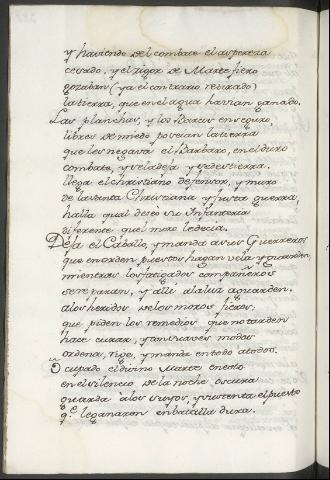 y haviendo del combate el aspereza
cesado, y el rigor de Marte fiero
gozaban (ya el contrario retirado)
la tierra, que en el agua havian ganado.
Las planchas, y los Barcos en seguro,
libres de miedo poseian la tierra
que les negava el Barbaro, en el duro
combate, y ve la deja y se destierra.
llega el christiano defensor, y muro
de la santa Christiana y justa guerra,
halla qual deseo su Infanteria
diferente quel moro le decia.
Deja el Caballo, y manda a sus Guerreros
que en orden puestos hagan vela y guarden,
mientras los fatigados compañeros
se reparan, y alli a la luz aguarden.
a los heridos de los moros fieros;
que piden los remedios que no tarden
hace curar, y con suaves modos
ordena, rige, y manda en todo a todos.
Ocupado el divino Marte en esto
en el silencio de la noche oscura
guarda à los suyos, y sustenta el puesto
q.e le ganaron en batalla dura.